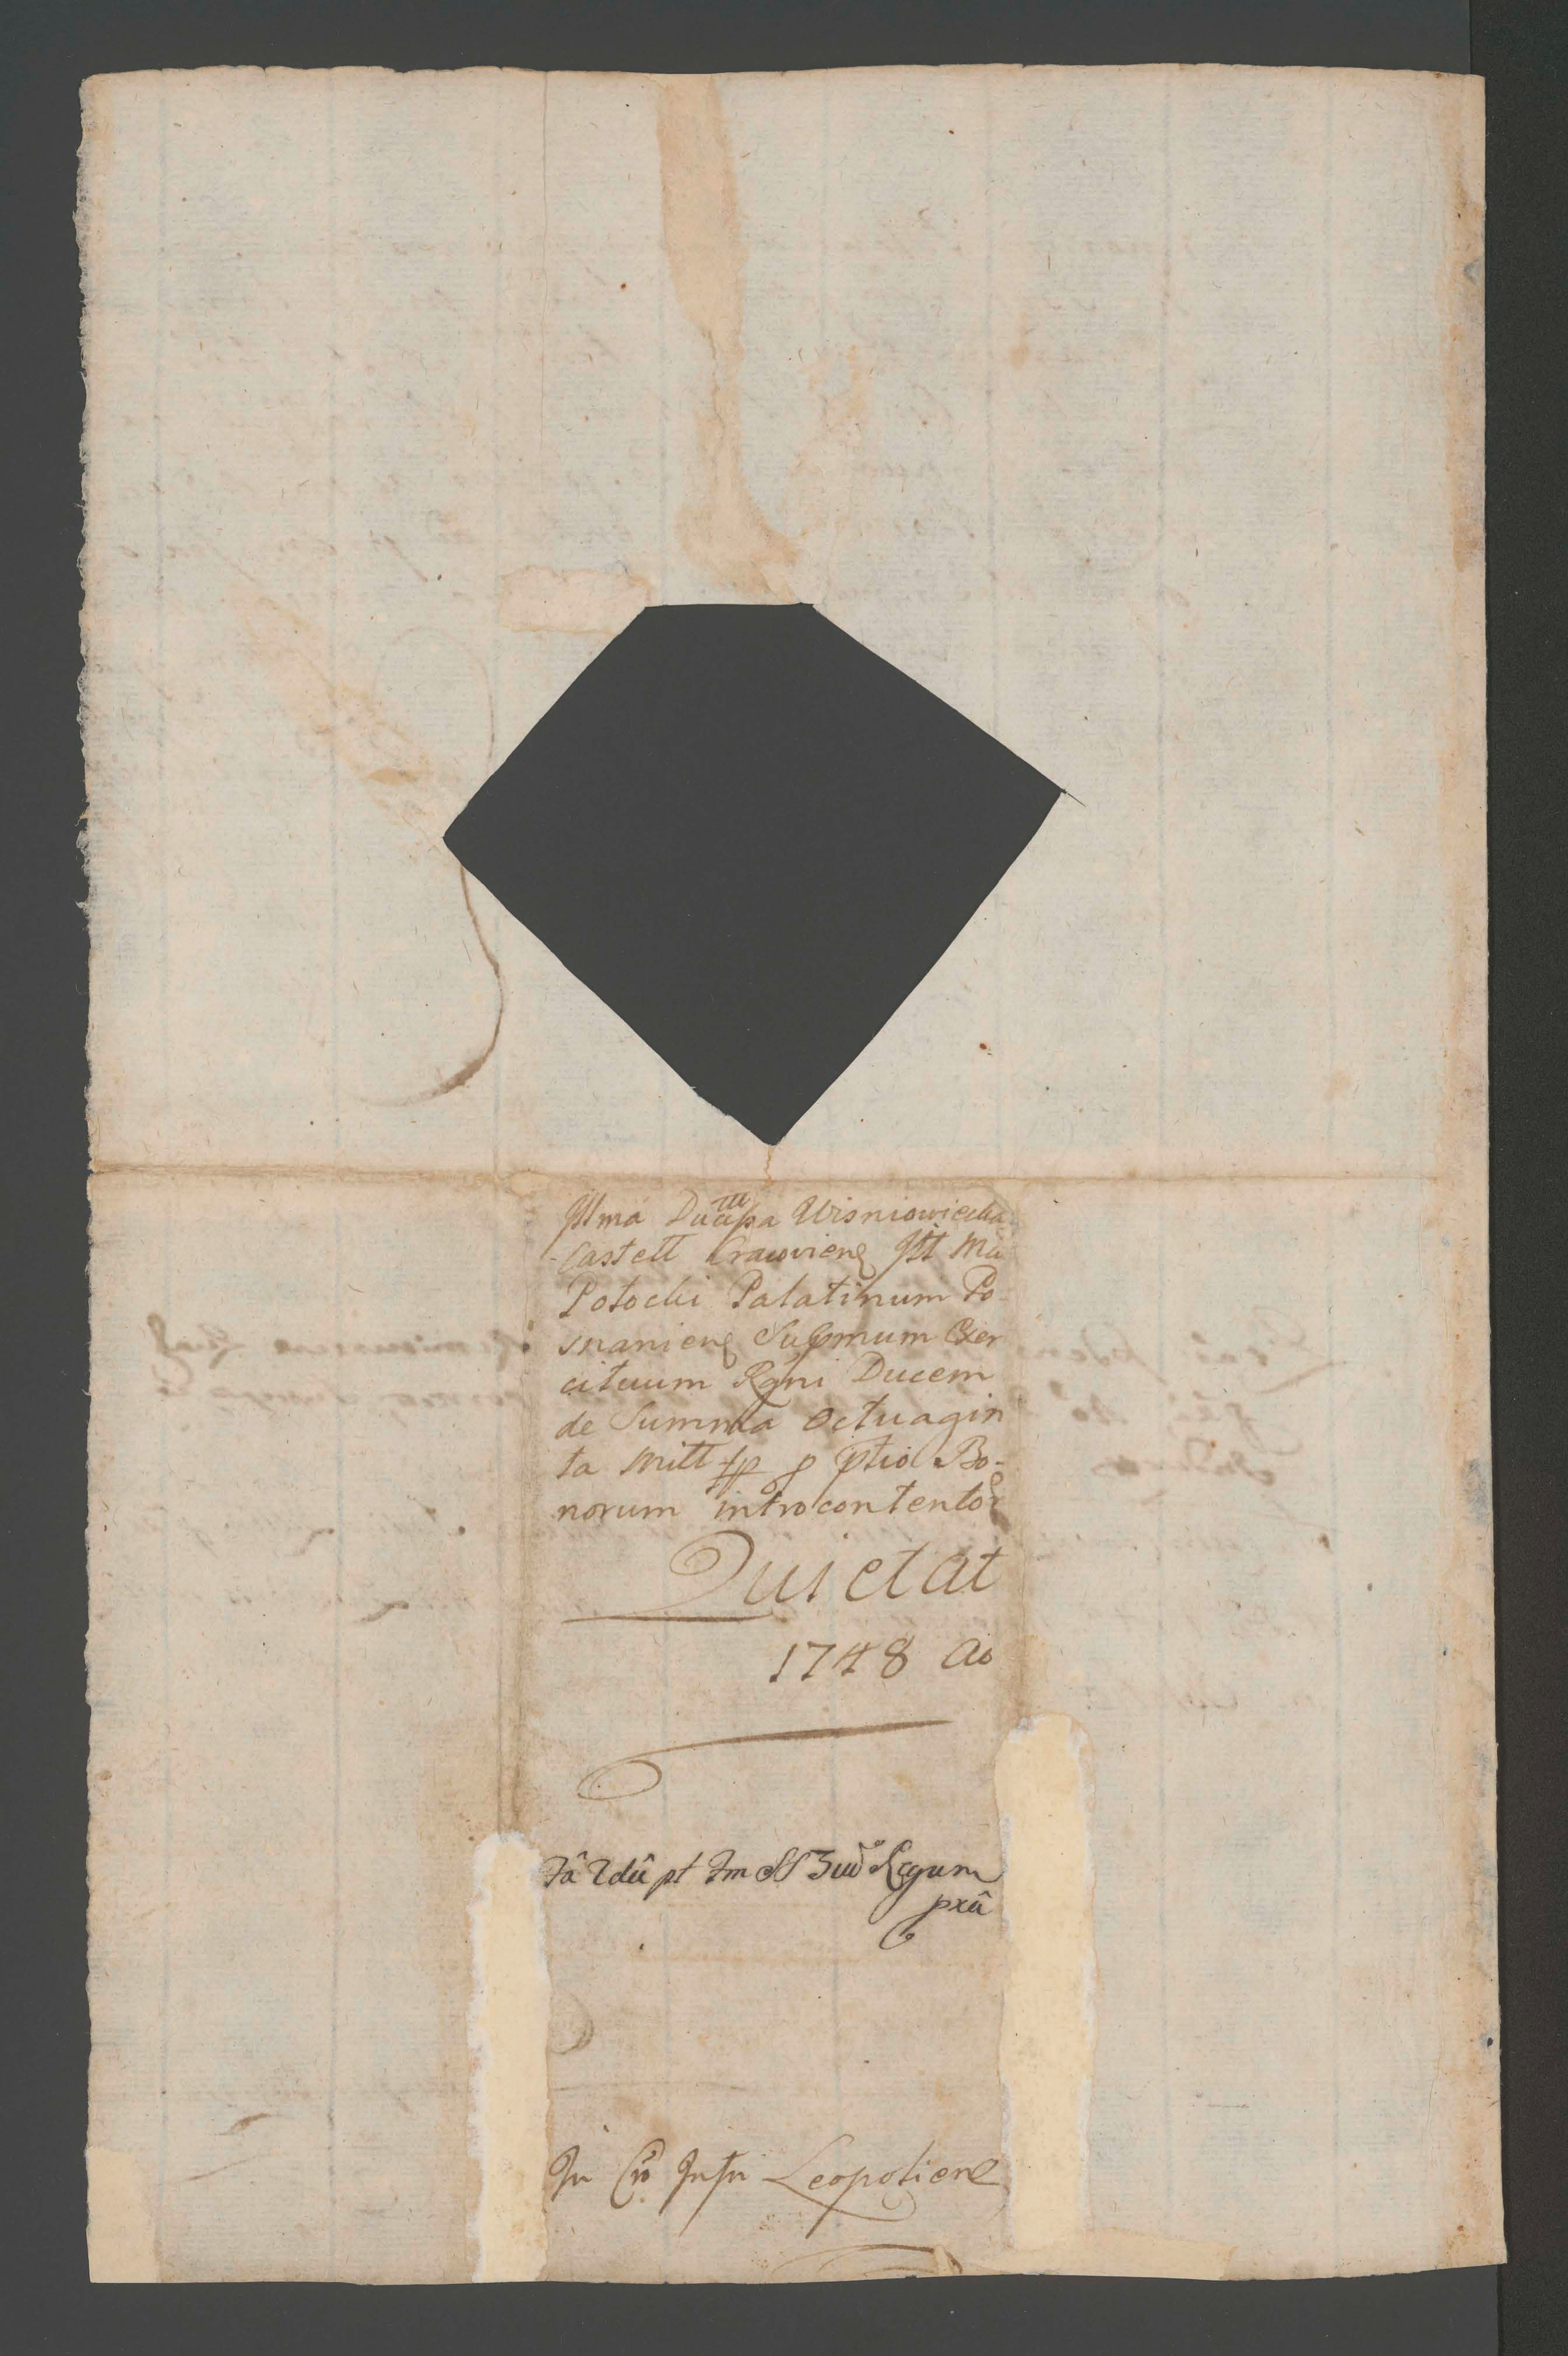 Illma Ducissa Wisniowiecka
Castell Cracovien Ill Mu
Potocki Palatinum Po-
snanien Supmum Exer
cituum Rgni Ducem
de Summa Octuagin
ta Mill fp p ptio Bo-
norum introcontentor
Quietat
1748 Ao
Legum
In Leopolien